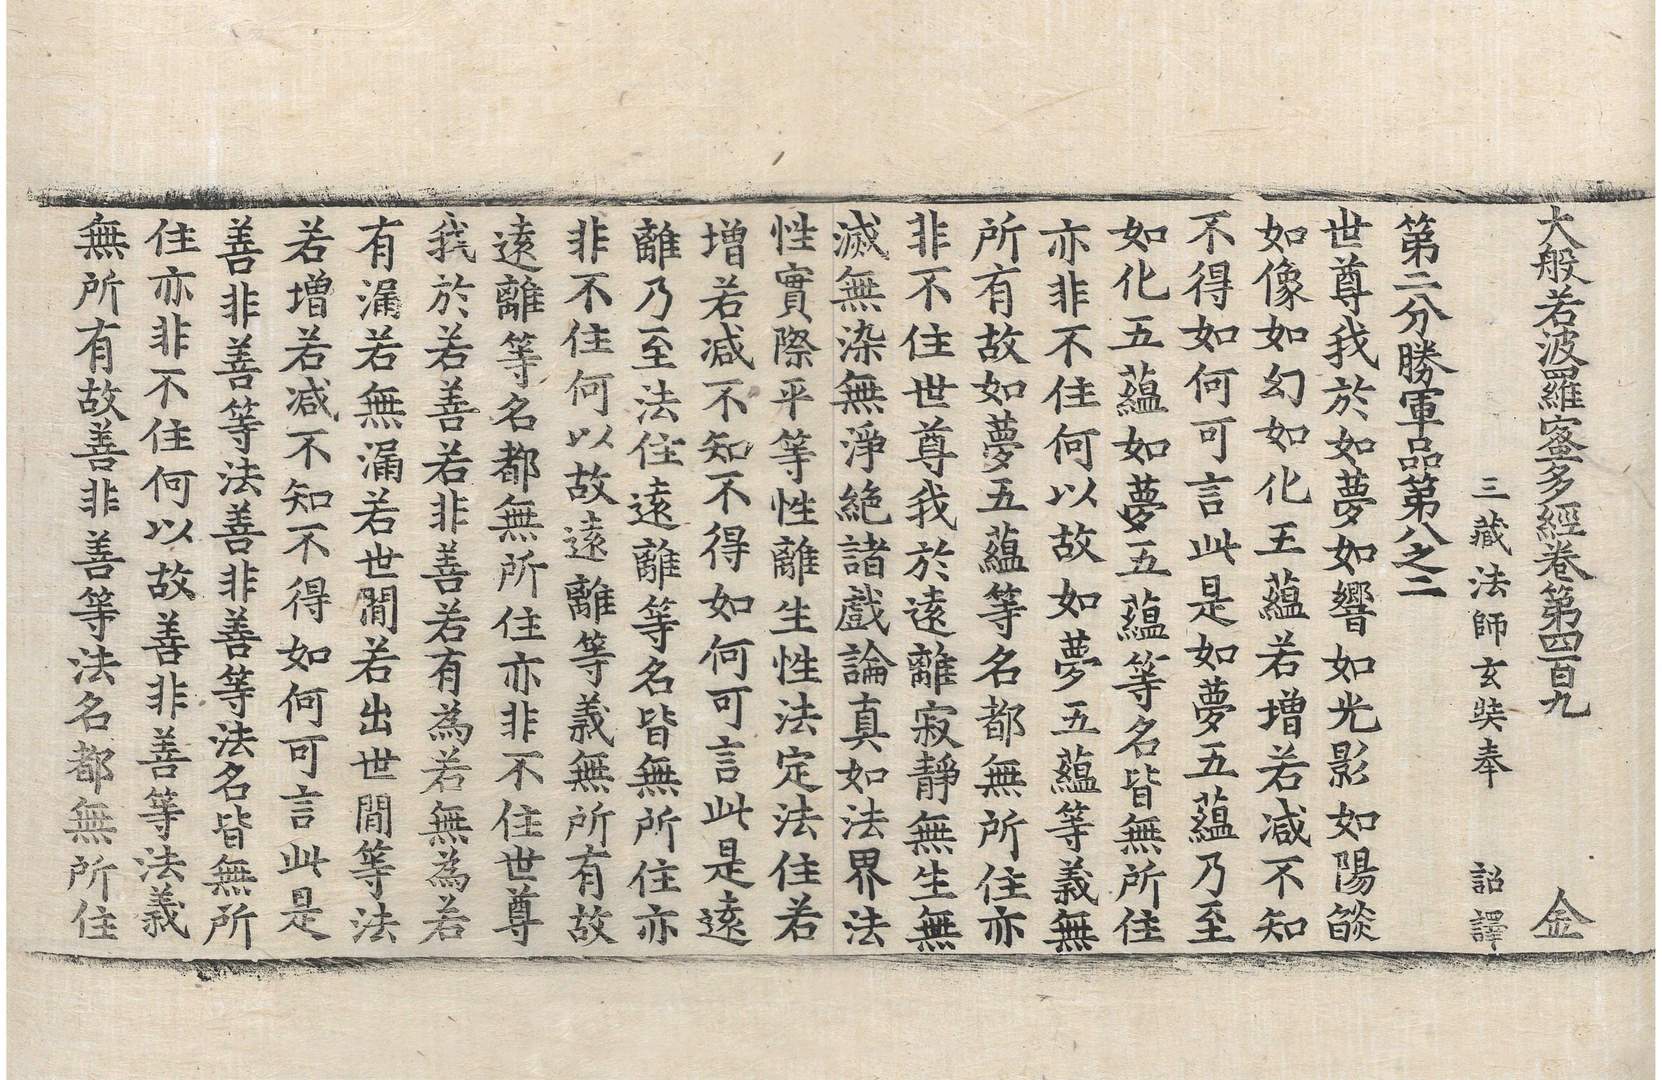 大般若波羅蜜多經卷第四百九 金
三藏法師玄奘奉 詔譯
第二分勝軍品第八之二
世尊我於如夢如響如光影如陽燄
如像如幻如化五蘊若增若減不知
不得如何可言此是如夢五蘊乃至
如化五蘊如夢五蘊等名皆無所住
亦非不住何以故如夢五蘊等義無
所有故如夢五蘊等名都無所住亦
非不住世尊我於遠離寂靜無生無
滅無染無淨絕諸戲論真如法界法
性實際平等性離生性法定法住若
增若減不知不得如何可言此是遠
離乃至法住遠離等名皆無所住亦
非不住何以故遠離等義無所有故
遠離等名都無所住亦非不住世尊
我於若善若非善若有為若無為若
有漏若無漏若世間若出世間等法
若增若減不知不得如何可言此是
善非善等法善非善等法名皆無所
住亦非不住何以故善非善等法義
無所有故善非善等法名都無所住